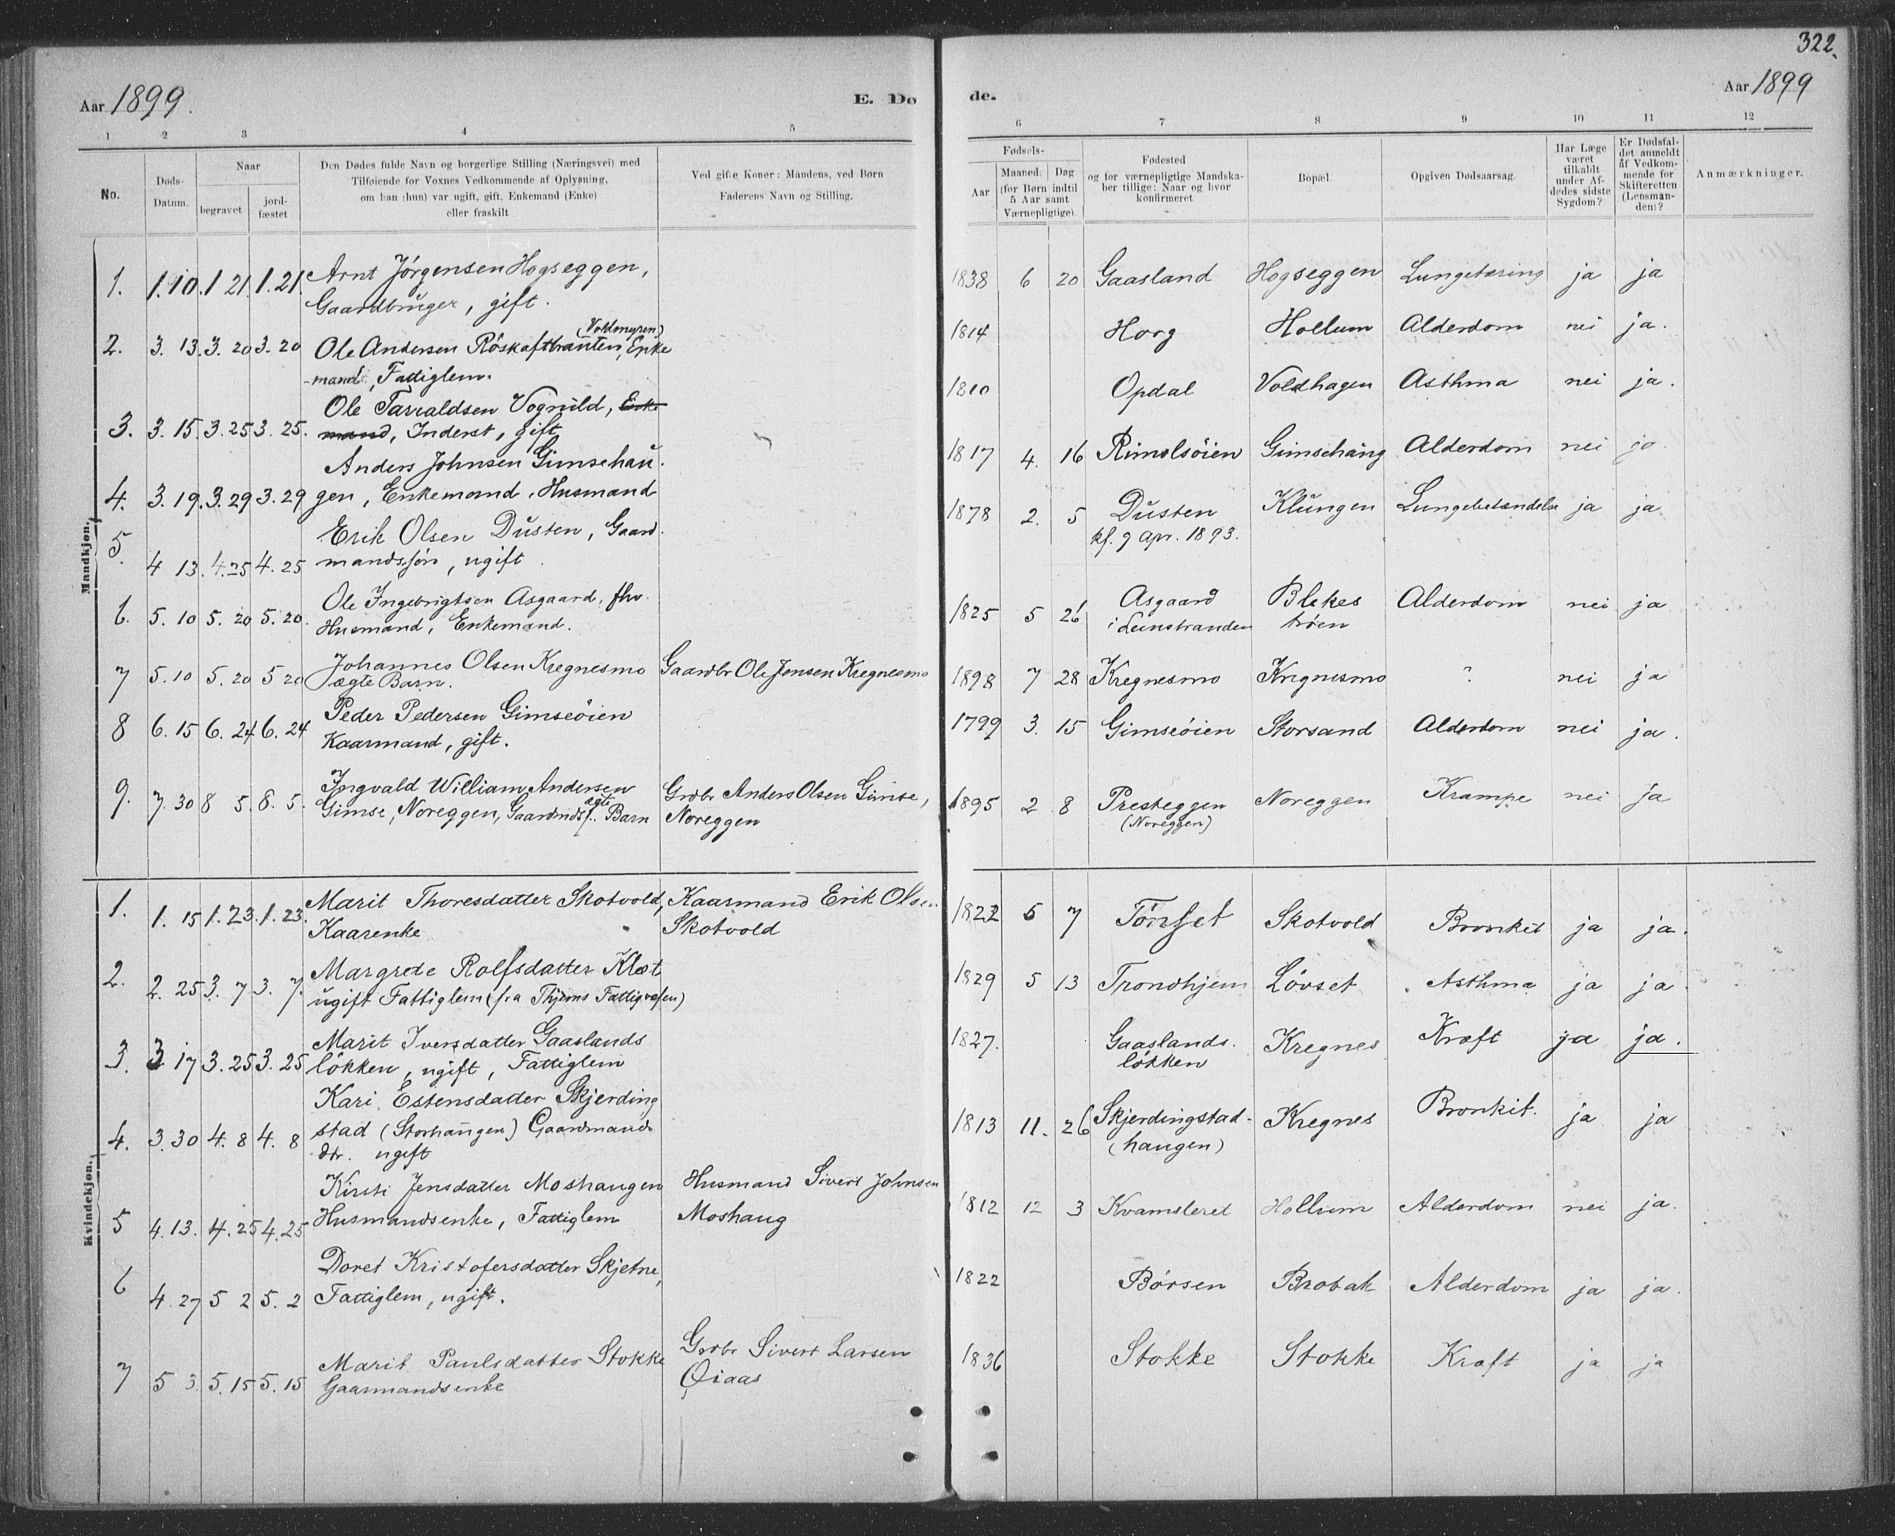 322.
Aar 1899.
E. Dø
de.
Aar 1899
1 2 3 4 5
6 7 8 9 10 11 12
No.
Døds-
Datum.
Naar
begravet
jord-
fæstet
Den Dødes fulde Navn og borgerlige Stilling (Næringsvei) med
Tilføiende for Voxnes Vedkommende af Oplysning,
om han (hun) var ugift, gift, Enkemand (Enke)
eller fraskilt
Ved gifte Koner: Mandens, ved Børn
Faderens Navn og Stilling.
Fødsels-
Aar
Maaned. Dag
(for Børn indtil
5 Aar samt
Værnepligtige).
Fødested
og for værnepligtige Mandska-
ber tillige: Naar og hvor
konfirmeret
Bopæl.
Opgiven Dødsaarsag.
Har Læge
været
tilkaldt
under Af-
dødes sidste
Sygdom?
Er Dødsfal-
det anmeldt
af Vedkom-
mende for
Skifteretten
(Lensman-
den)?
Anmærkninger.
Mandkjøn.
1. 1. 10. 1 21. 1. 21. Arnt Jörgensen Hogseggen, 1838 6 20 Gaasland Hogseggen Lungetæring ja ja
Gaardbruger, gift.
(Voldmyren)
2. 3. 13. 3. 20 3. 20 Ole Andersen Röskaftbrauten, Enke 1814 Horg Hollum Alderdom nei ja.
mand, Fattiglem.
Ole Tarraldsen Vognild, Enke 1810 Opdal Voldhagen Asthma nei ja.
3. 3. 15. 3. 25 3. 25. mand, Inderst, gift
Anders Johnsen Gimsehau. 1817 4. 16 Rimolsöien Gimsehaug Alderdom nei ja
4. 3. 19. 3. 29 3. 29 gen, Enkemand, Husmand
5 Erik Olsen Dusten, Gaard. 1878 2. 5 Dusten Klungen Lungebetændelse ja ja
kf. 9 Apr. 1893.
4 13. 4. 25 4. 25 mandssön, ugift.
6. 5. 10 5. 20 5. 20. Ole Ingebrigtsen Asgaard, fhv. 1825 5 26 Asgaard Blekes Alderdom nei ja
Husmand, Enkemand. i Leinstranden tröen
7 5. 10 5. 20 5 20 Johannes Olsen Kregnesmo Gaardbr Ole Jensen Kregnesmo 1898 7 28 Kregnesmo Kregnesmo ? nei ja
ægte Barn.
8 6. 15 6. 24 6. 24 Peder Pedersen Gimseöien 1799 3. 15 Gimseöien Storsand Alderdom nei ja.
Kaarmand, gift.
9. 7. 30 8 5. 8. 5. Ingvald William Andersen Grdbr Anders Olsen Gimse, 1895 2 8 Presteggen Noreggen Krampe nei ja
ægte
Gimse, Noreggen, Gaardmds. Barn Noreggen (Noreggen)
Kvindekjøn.
1. 1. 15 1. 23. 1. 23. Marit Thoresdatter Skotvold, Kaarmand Erik Olsen 1822 5 7 Tönset Skotvold Bronkit ja ja.
Kaarenke Skotvold
2. 2. 25 3. 7 3. 7. Margrede Rolfsdatter Klæt 1829 5 13 Trondhjem Lövset Asthma ja ja.
ugift Fattiglem (fra Thjems Fattigvesen)
3. 3 17 3. 25 3. 25 Marit Iversdatter Gaaslands 1827. Gaaslands. Kregnes Kræft ja ja.
lökken, ugift, Fattiglem lökken
Kari Estensdatter Skjerding 1813 11. 26 Skjerdingstad- Kregnes Bronkit. ja ja
4. 3. 30 4. 8 4. 8 stad (Storhaugen) Gaardmands (haugen)
dtr. ugift
Kirsti Jensdatter Moshaugen Husmand Sivert Johnsen 1812 12 3 Kvamsleret Hollum Alderdom nei ja.
5 4. 13. 4. 25 4. 25 Husmandsenke, Fattiglem Moshaug
6 Doret Kristofersdatter Skjetne, 1822 Börsen Brobak Alderdom ja ja.
4. 27 5 2 5. 2 Fattiglem, ugift.
7 5 3. 5. 15 5. 15 Marit Paulsdatter Stokke Grdbr Sivert Larsen 1836 Stokke Stokke Kræft ja ja
Gaarmandsenke Öiaas